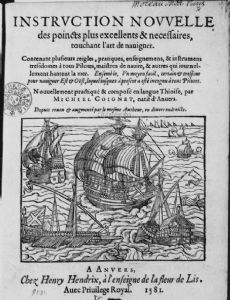 INSTRVCTION NOVVELLE
des poincts plus excellents & necessaires,
touchant l'art de nauiguer.
Contenant plusieurs reigles, pratiques, enseignemens, & instrumens
tresidoines à tous Pilotes, maistres de nauire, & autres qui iournel-
lement hantent la mer. Ensemble, Vn moyen facil, certain & tresseur
pour nauiguer Est & Ouest, lequel iusques à present a esté incognu à tous Pilotes.
Nouuellement practiqué & composé en langue Thioise, par
MICHIEL COIGNET, natif d'Anuers.
Depuis reueu & augmenté par le mesme Autheur, en diuers endroicts.
A ANVERS,
Chez Henry Hendrix, à l'enseigne de la fleur de Lis.
Auec Priuilege Royal. 1581.